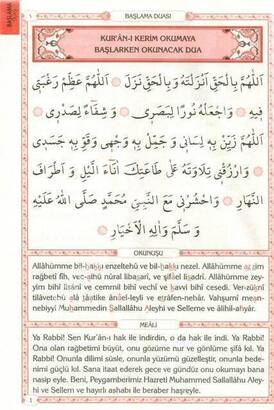 BAŞLAMA
BAŞLAMA DUASI
KUR'ÂN-I KERİM OKUMAYA
BAŞLARKEN OKUNACAK DUA
اَللّٰهُمَّ بِالْحَقِّ اَنْزَلْتَهُ وَ بِالْحَقِّ نَزَلَ ۞ اَللّٰهُمَّ عَظِّمْ رَغْبَتِي
فِيهِ ۞ وَاجْعَلْهُ نُورًا لِبَصَرِي ۞ وَ شِفَاءً لِصَدْرِي ۞
اَللّٰهُمَّ زَيِّنْ بِهِ لِسَانِي وَ جَمِّلْ بِهِ وَجْهِي وَقَوِّ بِهِ جَسَدِي
۞ وَارْزُقْنِي تِلَاوَتَهُ عَلٰى طَاعَتِكَ اٰنَاءَ الَّيْلِ وَ اَطْرَافَ
النَّهَارِ ۞ وَاحْشُرْنِي مَعَ النَّبِيِّ مُحَمَّدٍ صَلَّى اللّٰهُ عَلَيْهِ
وَ سَلَّمَ وَاٰلِهِ الْاَخْيَارِ ۞
OKUNUŞU
Allâhümme bil-hakkı enzeltehû ve bil-hakkı nezel. Allâhümme azzim
rağbetî fîh, vec-alhü nûral libasarî, ve şifâel lisadrî. Allâhümme zey-
yim bihî lisânî ve cemmil bihî vechî ve kavvi bihî cesedî. Ver-zuknî
tilâvetehû alâ tâatike ânâel-leyli ve etrâfen-nehâr. Vahşurnî mean-
nebiyyi Muhammedin Sallallâhu Aleyhi ve Selleme ve âlihil-ahyâr.
MEALİ
Ya Rabbi! Sen Kur'ân-ı hak ile indirdin, o da hak ile indi. Ya Rabbi!
Ona olan rağbetimi büyüt, onu gözüme nur ve gönlüme şifâ kıl. Ya
Rabbi! Onunla dilimi süsle, onunla yüzümü güzelleştir, onunla bede-
nimi güçlü kıl. Sana itaat ederek gece ve gündüz onu okumayı bana
nasip eyle. Beni, Peygamberimiz Hazreti Muhammed Sallallâhu Aley-
hi ve Sellem ve hayırlı ashabı ile beraber haşreyle.
1